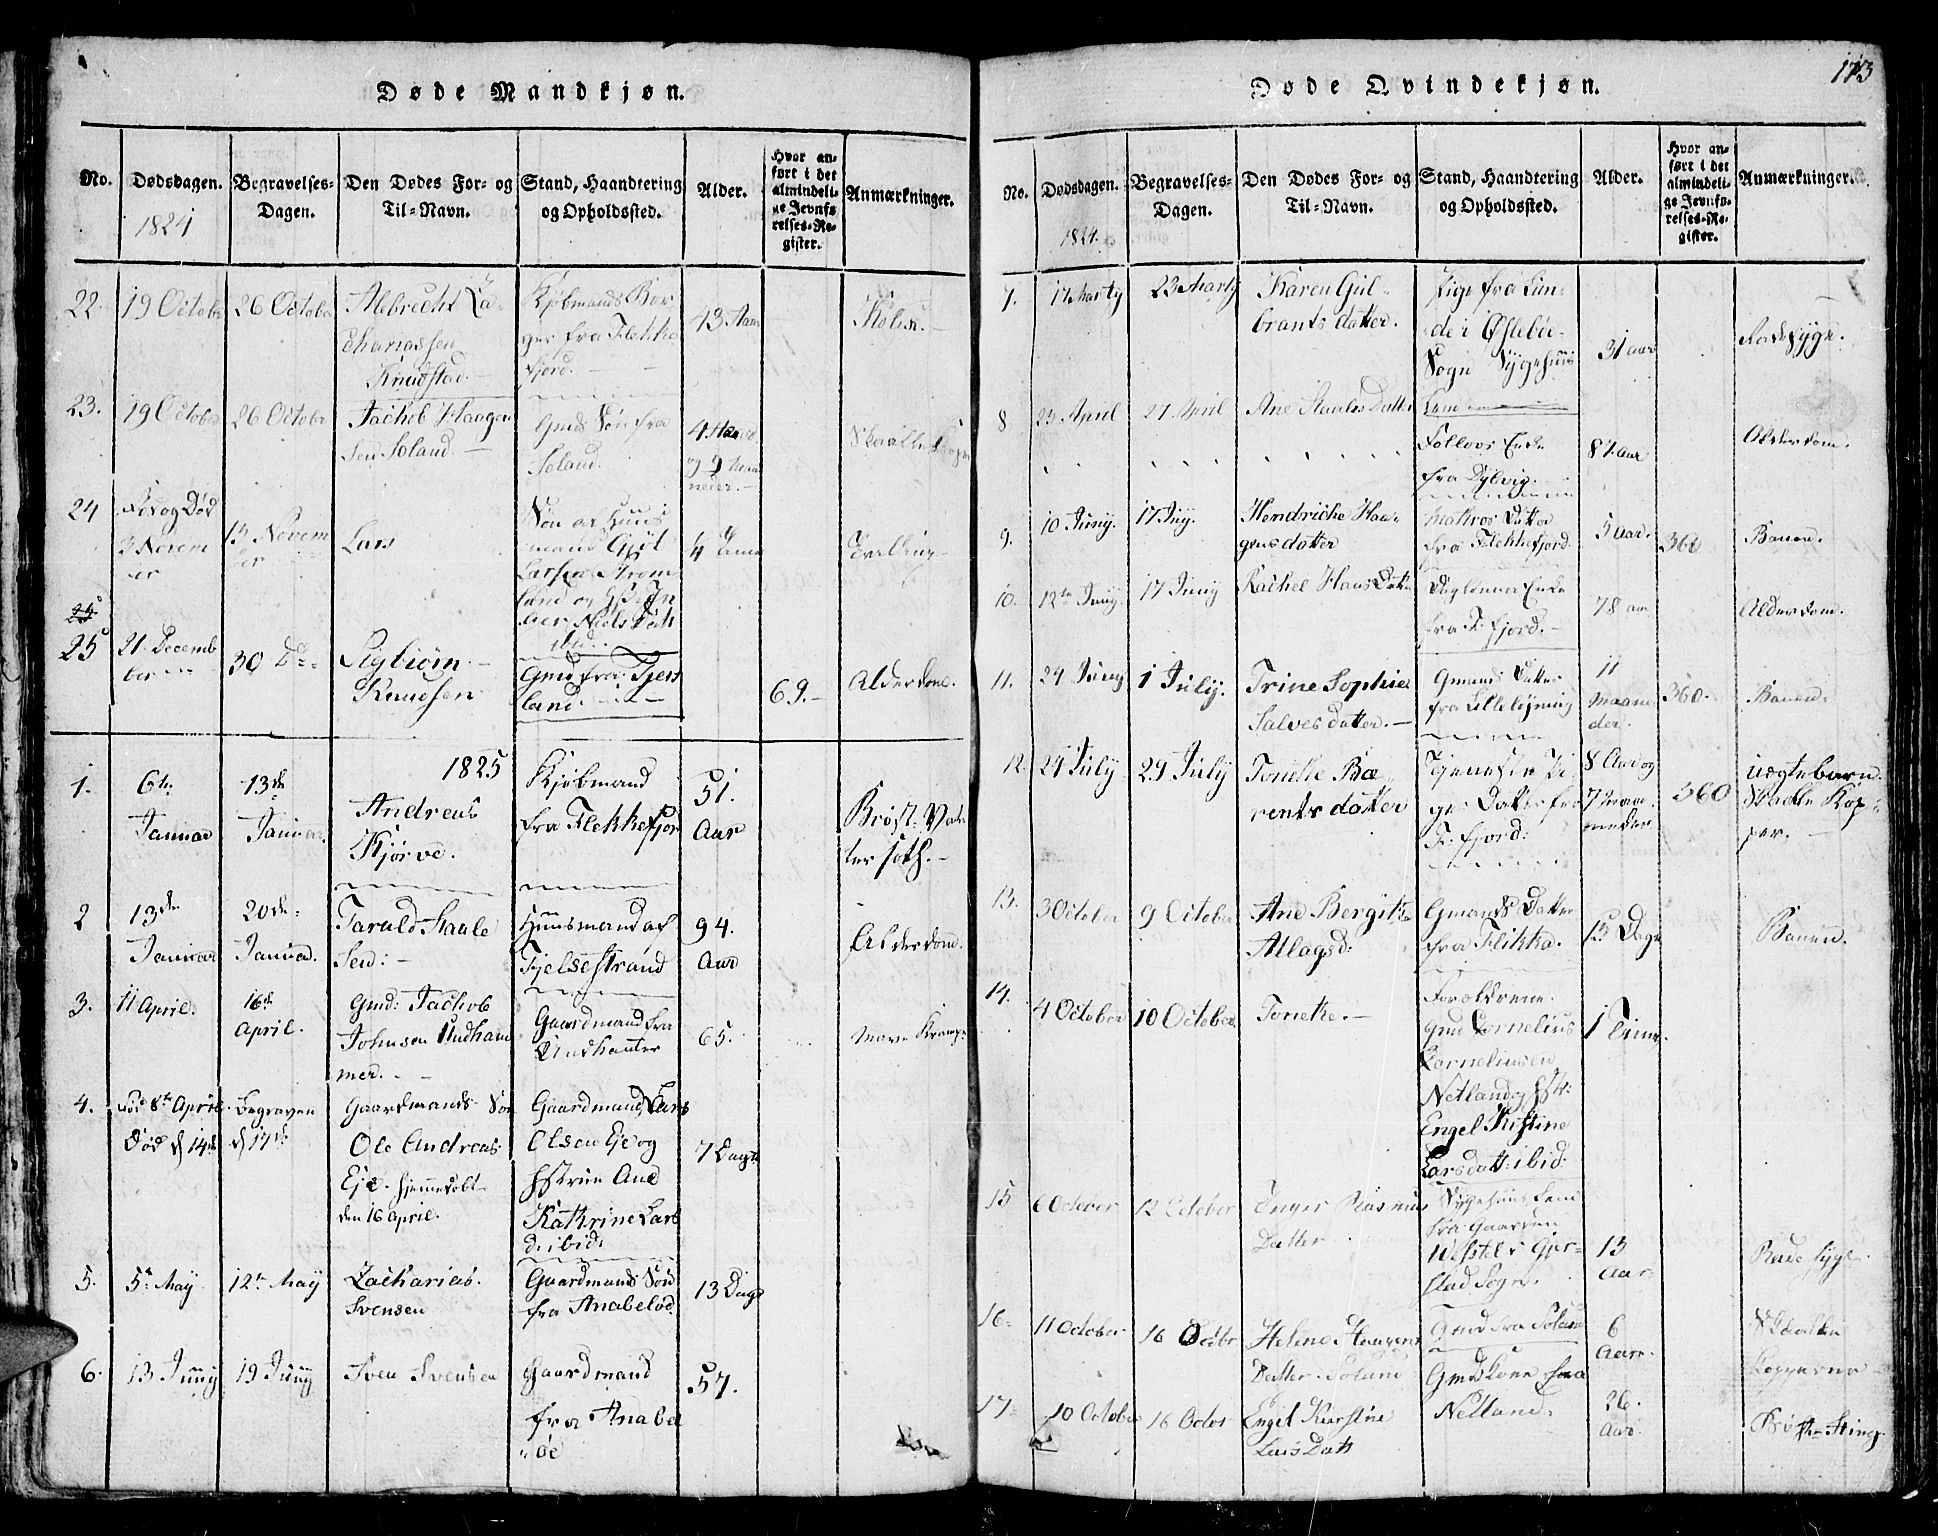 Døde Mandkjøn.
No.
Dødsdagen.
1824
Begravelses-
Dagen.
Den Dødes For- og
Til-Navn.
Stand, Haandtering
og Opholdssted.
Alder.
Hvor an-
ført i det
almindeli-
ge Jevnfø-
relses-Re-
gister.
Anmærkninger.
22.
19 October
26 October
Albrecht Za-
chariassen
Knudstad.
Kjøbmands Bor
ger fra Flekke
fjord.
43 Aar
23.
19 October
26 October
Jachob Haagen
sen Soland.
Gmds Søn fra
Soland.
4 Aar
og 9 Maa
neder.
24
Fød og Død
3 Novem
ber
13 Novem
ber
Lars
Søn af Huus
mand
Larsen Strøm
land og
Niels Datt
ibid.
Tvilling
25
21 Decemb
ber
30 D
Sigbiørn
Knudsen
Gmd fra Fjers
land.
69.-
Alderdom.
1825
1.
6te
Januar
13de
Januar.
Andreas
Kjørve.
Kjøbmand
fra Flekkefjor
51.
Aar
Bryst-Vat-
ter soth.
2
13de
Januar
20de
Januar.
Taruld Staale
Sen:
Huusmand af
Fjelsestrand
94.
Aar
Alderdom.
3.
11 April.
16de
April.
Gmd: Jachob
Johnsen Undham
mer.
Gaardmand fra
Undhammer
65.
Mave Krampe
4.
Fød 8de April.
Død d 14de
Begraven
d 17de
Gaardmands Søn
Ole Andreas
Eje. hjemmedøbt
den 16 April.
Gaardmand Lars
Olsen Eje og
Hstrue Ane
Kathrine Lars
D. ibid:
7 Dage
5.
5te May
12te May
Zacharias.
Svensen
Gaardmands Søn
fra Anabeløe.
13 Dage
6.
13 Juny
19 Juny
Sven Svensen
Gaardmand
fra Anabel
øe
57.
173
Døde Qvindekjøn.
No.
Dødsdagen.
1824.
Begravelses-
Dagen.
Den Dødes For- og
Til-Navn.
Stand, Haandtering
og Opholdssted.
Alder.
Hvor an-
ført i det
almindeli-
ge Jevnfø-
relses-Re-
gister.
Anmærkninger.
7.
17 Marty
23 Marty
Karen Gul-
brants datter.
Pige fra Lun-
de i Øslebøe
Sogn Sygehuus
Lem
31 aar
Radesyge.
8
23 April
27 April
Ane Staales Datter
Enke
fra Dylvig.
87 aar
Alderdom.
9.
10 Juny.
17 Juny.
Hendriche Haa-
gens datter
Mattros Datter
fra Flekkefjord
5 aar.
360
Barn.
10.
12te Juny.
17 Juny
Rachel Hans Datter
Daglønner Enke
fra F. fjord.
78 aar
Alderdom.
11.
24 Juny
1 July.
Trine Sophie
Salves datter.
Gmands Datter
fra Lilleløjning
11
Maane
der.
360.
12.
24 July
29 July
Toneke Bæ-
rents datter
Tjeneste Pi-
ges Datter fra
F. fjord:
8 Aar og
7 maa
neder
360
uægtebarn.
Kop-
per.
13.
3 October
9 October
Ane Bergitte
Atlagsd:
Gmands Datter
fra Flikka.
15 Dage
14.
4 October
10 October.
Toneke.
Forældrene
gmd Cornelius
Corneliusen
Netland og Hstr:
Engel Kistine
Larsdatt: ibid:
1 Time
15
6 October
12 October
Inger Rasmus
Datter
Sygehuus Lem
fra Gaarden
i Gjer-
stad Sogn.
13
Aar
Rade syge
16
11 October
16 Octbr
Helene Haagens
Datter Soland
Gmd fra Soland
6
Aar.
Kopperne
17
10 October
16 Octbr
Engel Kirstine
Lars Datt
Gmds Kone fra
Netland.
26.
Aar.
Bryst-Sting